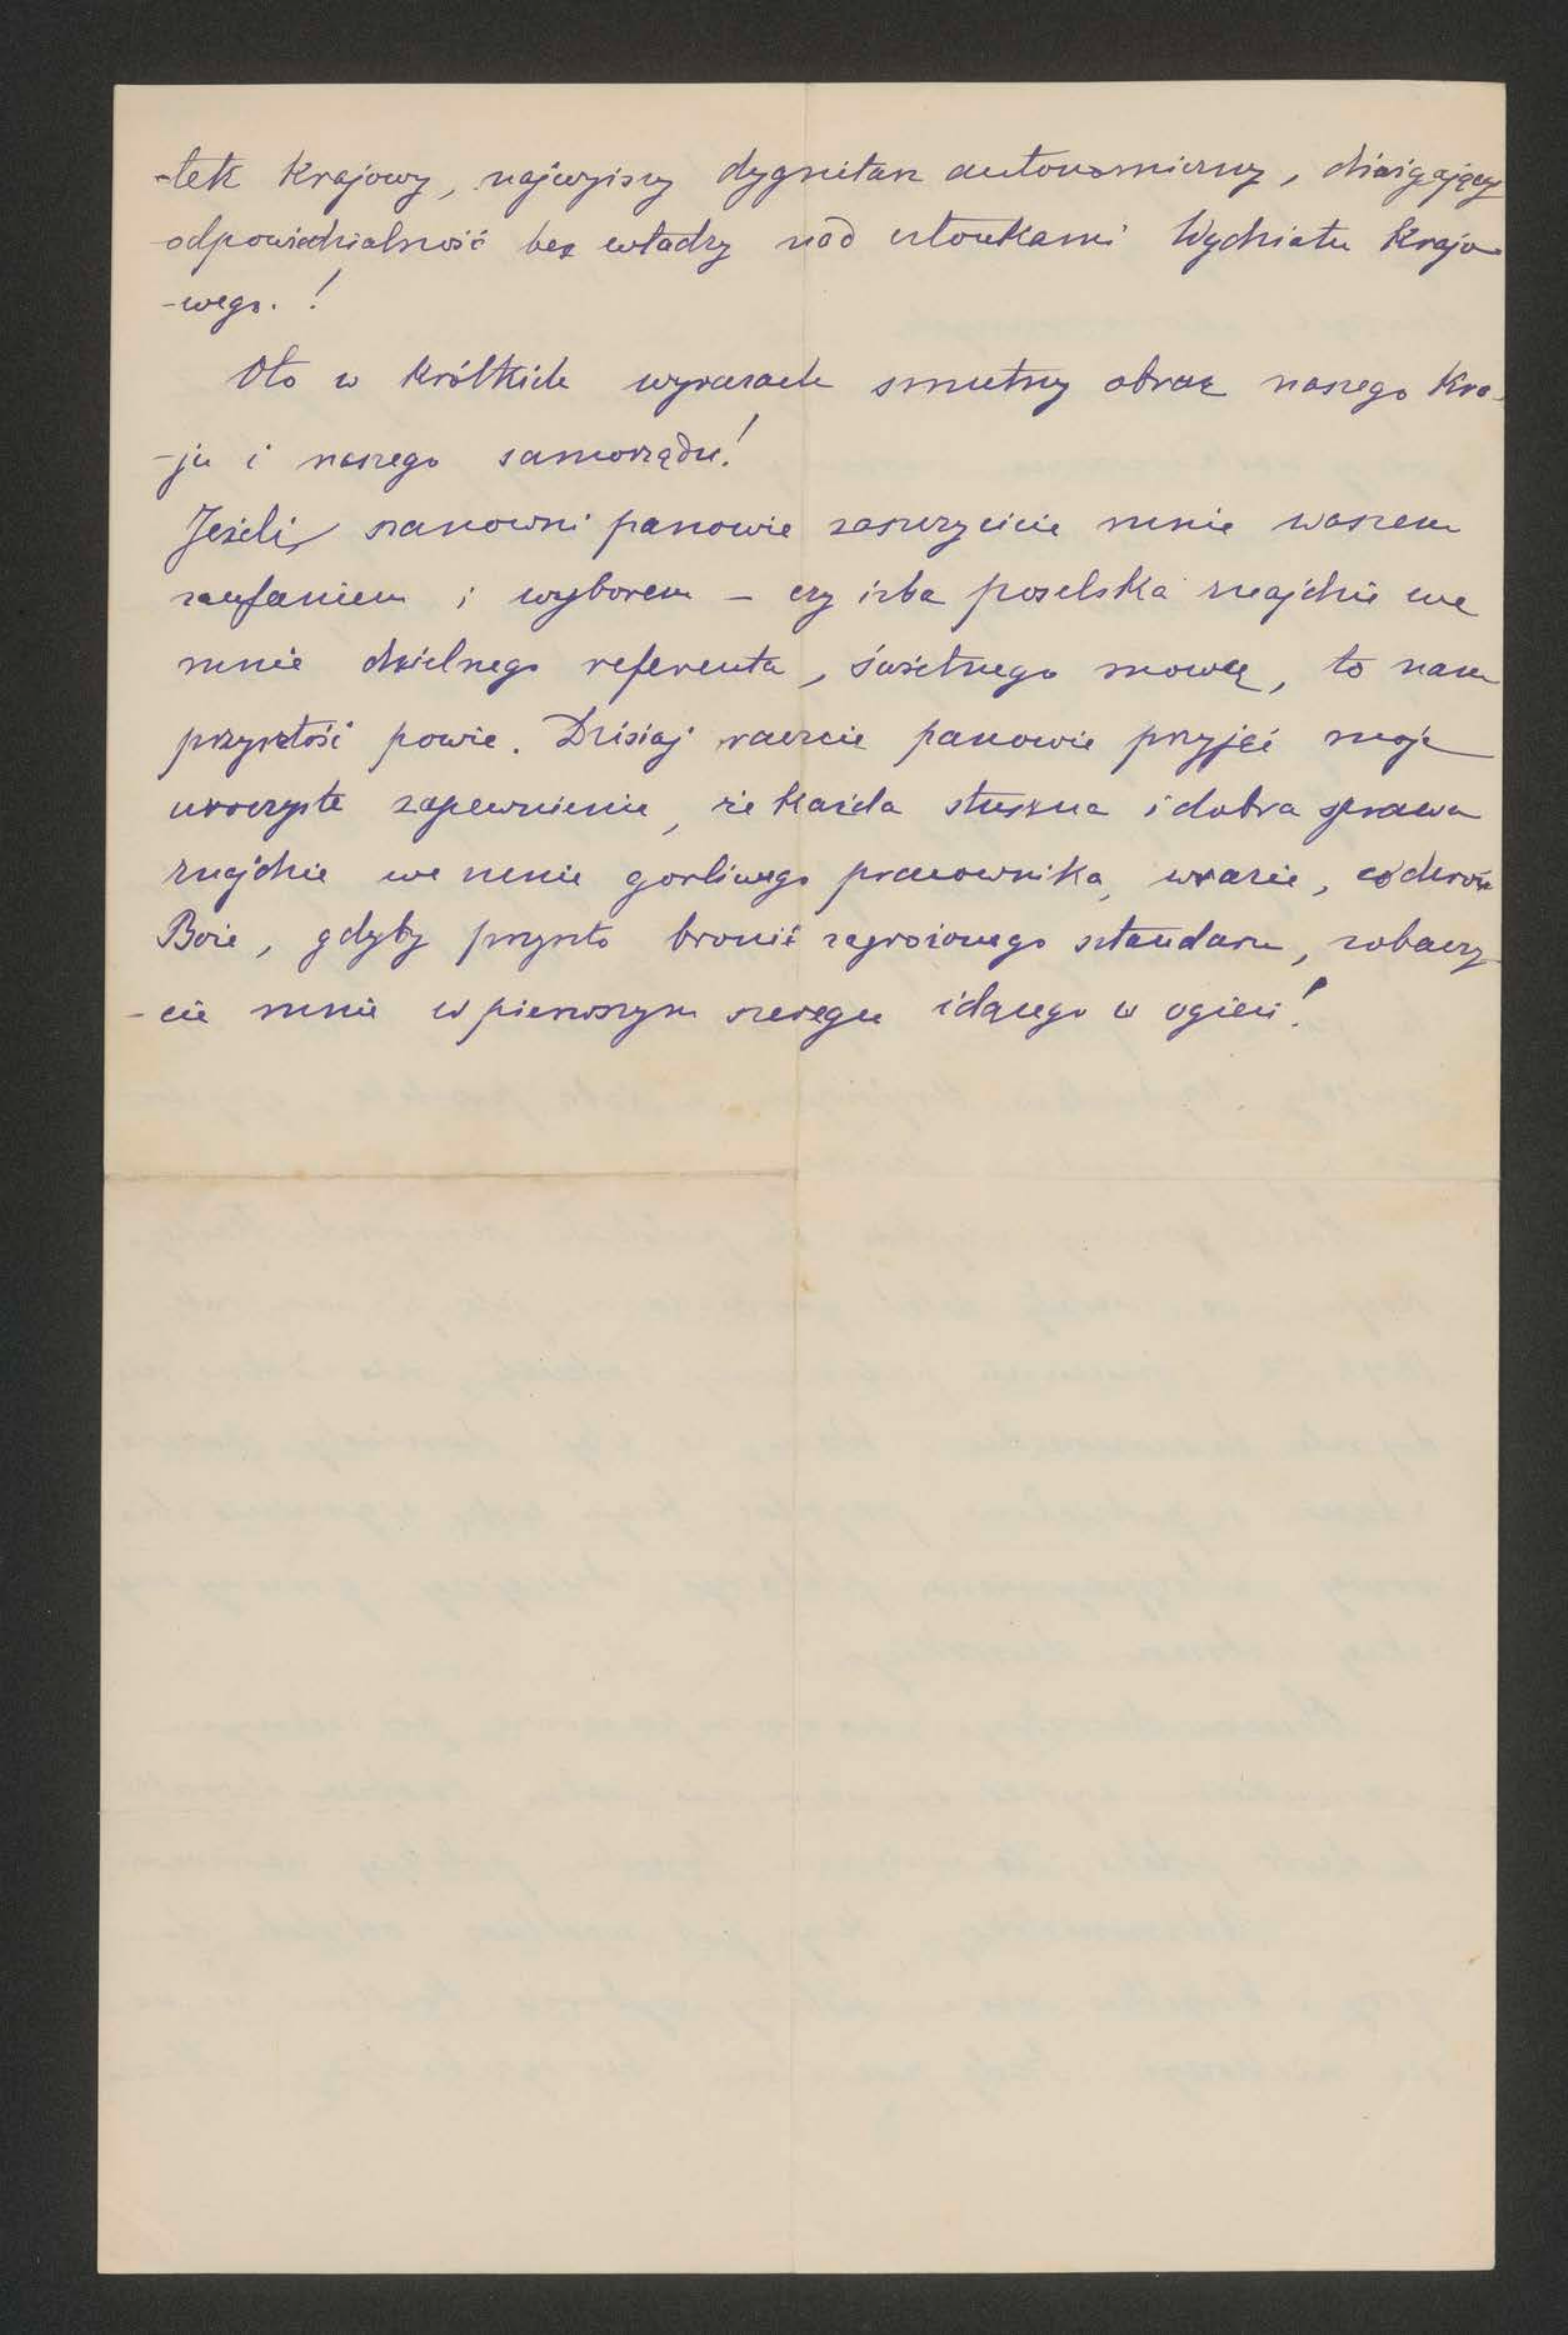 -łek Krajowy, najwyższy dygnitarz autonomiczny, dźwigający
odpowiedzialność bez władzy nad członkami Wydziału Krajo
-wego. !
Oto w krótkich wyrazach smutny obraz naszego Kra-
-ju i naszego samorządu!
Jeżeli, szanowni panowie zaszczycicie mnie waszem
zaufaniem i wyborem – czy izba poselska znajdzie we
mnie dzielnego referenta, świetnego mowcę, to nam
przyszłość powie. Dzisiaj raczcie panowie przyjąć moje
uroczyste zapewnienie, że każda słuszna i dobra sprawa
znajdzie we mnie gorliwego pracownika, wrazie, co chroń
Boże, gdyby przyszło bronić zagrożonego sztandaru, zobaczy-
-cie mnie w pierwszym szeregu idącego w ogień!